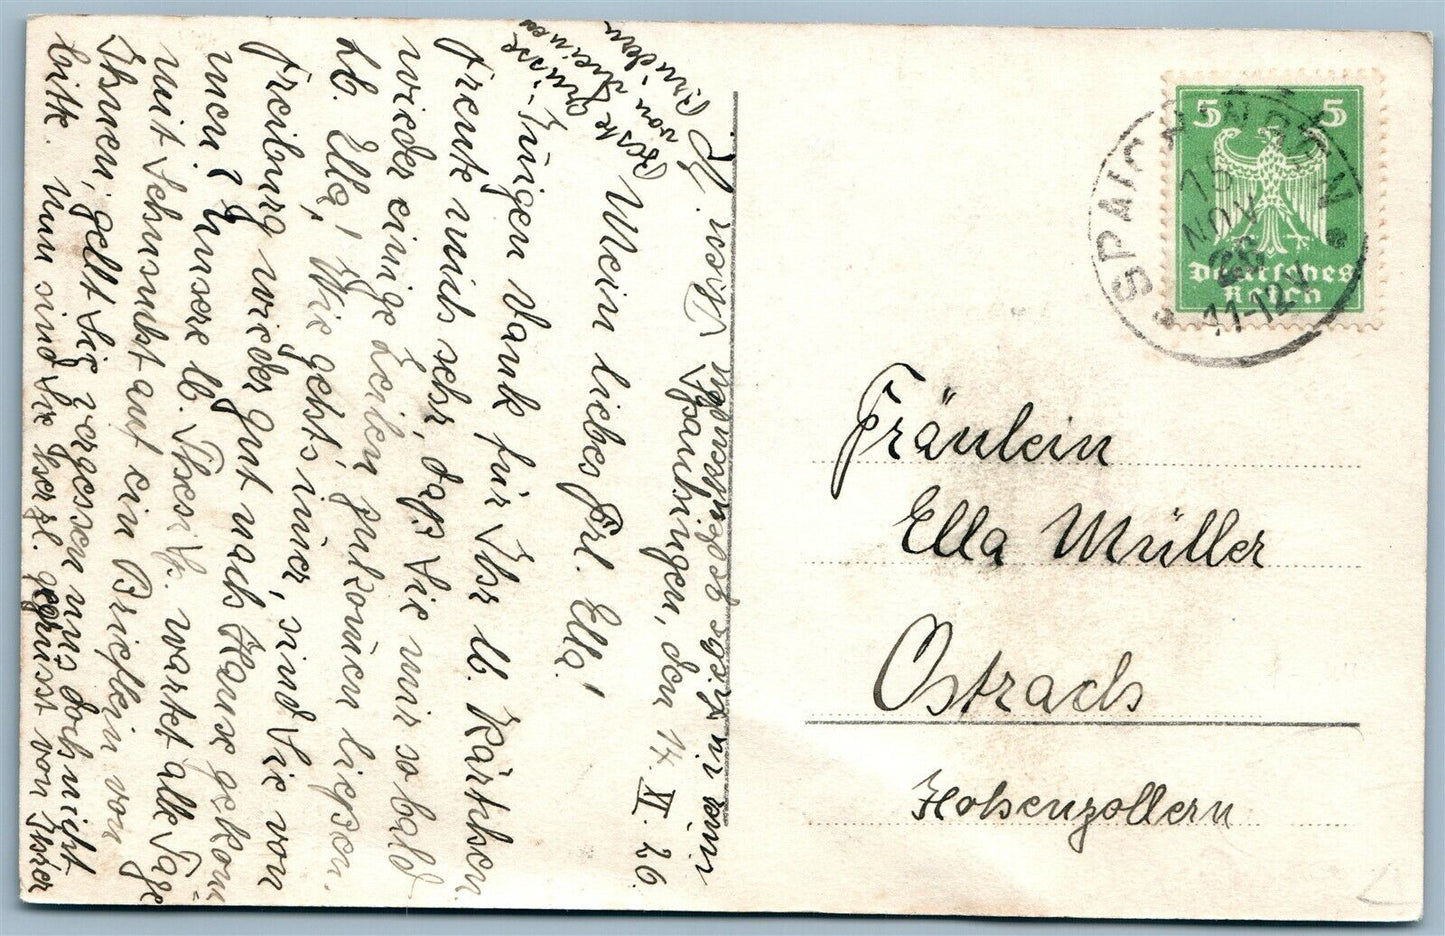 Spaichingen, den 14. XI. 26.
Mein liebes Frl. Ella!
Innigen Dank für Ihr lb. Kärtchen
Freute mich sehr, daß Sie mir so bald
wieder einige Zeilen zukommen liesen.
Lb. Ella, Wie geht's immer, sind Sie von
Freiburg wieder gut nach Hause gekom=
men? Unsere lb. wartet alle Tage
mit Sehnsucht auf ein Brieflein von
Ihnen, gellt Sie vergessen uns doch nicht
bitte. Nun sind Sie herzl. gegrüsst von Ihrer
immer in Liebe gedenkenden
Beste Grüsse
von meinen
Brüdern
Fräulein
Ella Müller
Ostrach
Hohenzollern
5 5
Deutsches
Reich
SPAICHINGEN
15
NOV
26
11-12V